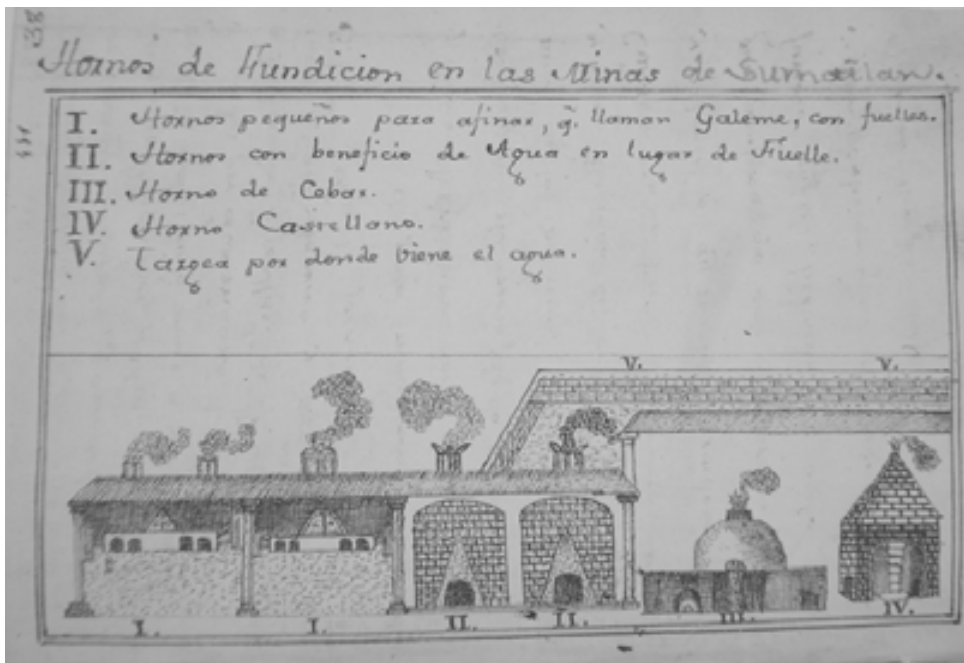 38
Hornos de Fundicion en las Minas de Sumatlan.
I. Hornos pequeños para afinar, q. llaman Galeme, con fuelles.
II. Hornos con beneficio de Agua en lugar de Fuelle.
III. Horno de Cebar.
IV. Horno Castellano.
V. Targea por donde viene el agua.
V. V.
I. I. II. II. III. IV.